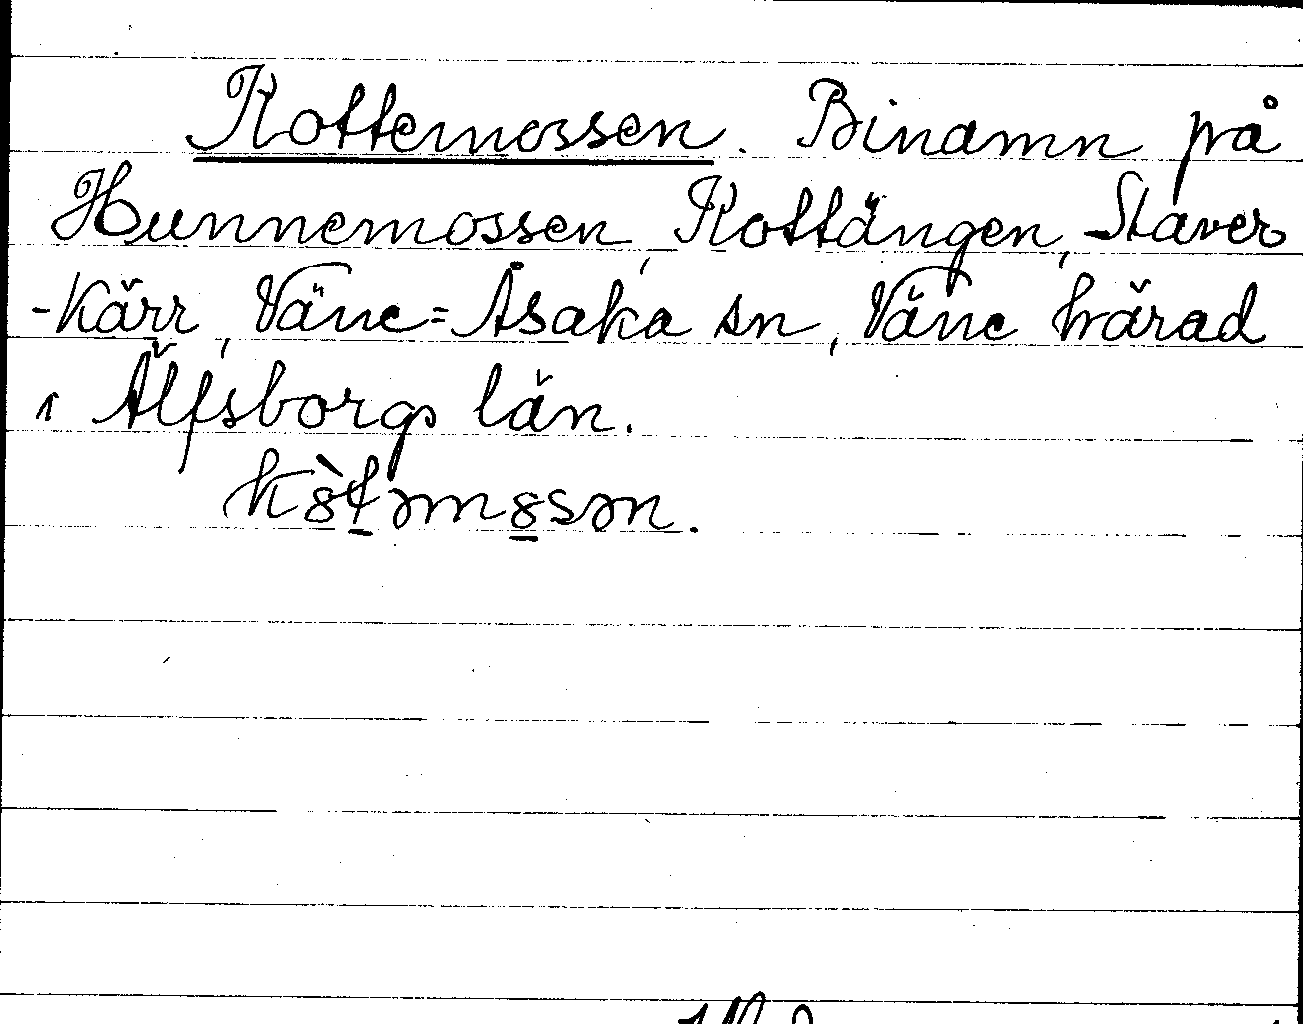 Kottemossen. Binamn på
Hunnemossen, Kottängen, Staver
-kärr, Väne=Åsaka sn, Väne härad
i Älfsborgs län.